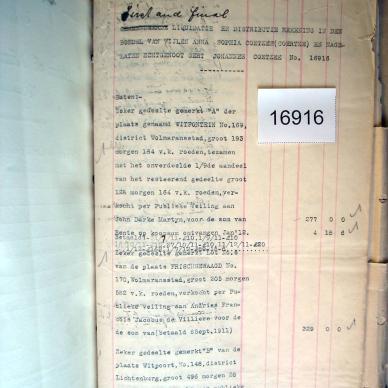 First and Final
LIQUIDATIE EN DISTRIBUTIE REKENING IN DEN
BOEDEL VAN WIJLEN ANNA SOPHIA COETZEE(COERTZE) EN NAGE-
LATEN ECHTGENOOT GERT JOHANNES COETZEE No. 16916
Baten:-
Zeker gedeelte gemerkt "A" der
plaats genaamd WITPONTEIN No.169,
16916
district Wolmaransstad, groot 193
morgen 164 v.k. roeden, tezamen
met het onverdeelde 1/9de aandeel
van het resteerend gedeelte groot
128 morgen 164 v.k. roeden, ver-
kocht per Publieke Veiling aan
John Darke Martyn, voor de som van 277 0 0
Rente op koopsom ontvangen Jan'12. 4 18 6
Zeker gedeelte gemerkt Lot
van de plaats FRISCHGEWAAGD No.
170, Volmaransstad, groot 205 morgen
582 v.k. roeden, verkocht per Pu-
blieke Veiling aan Andries Fran-
Jacobus de Villiers voor de
de som van(betaald 8Sept,1911) 329 0 0
Zeker gedeelte gemerkt"B" van de
plaats Witpoort, No.148, district
Lichtenburg, groot 496 morgen 28